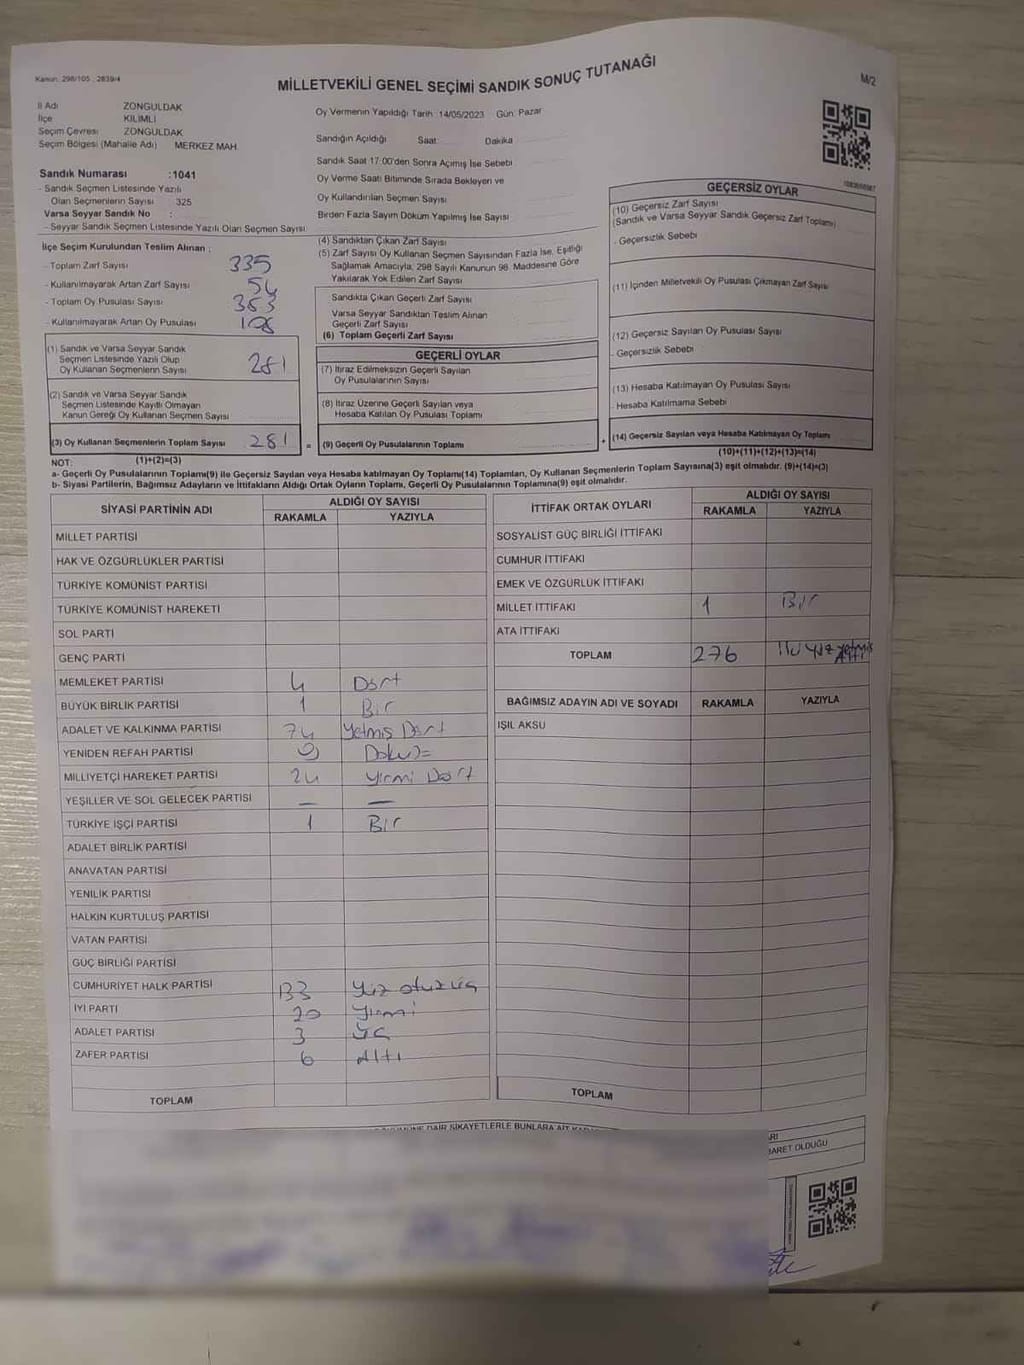 Kanun: 298/105 : 2839/4
MİLLETVEKİLİ GENEL SEÇİMİ SANDIK SONUÇ TUTANAĞI
M/2
İl Adı ZONGULDAK
İlçe KİLİMLİ
Seçim Çevresi ZONGULDAK
Seçim Bölgesi (Mahalle Adı) MERKEZ MAH.
Sandık Numarası :1041
- Sandık Seçmen Listesinde Yazılı
Olan Seçmenlerin Sayısı 325
Varsa Seyyar Sandık No :
- Seyyar Sandık Seçmen Listesinde Yazılı Olan Seçmen Sayısı
Oy Vermenin Yapıldığı Tarih :14/05/2023 Gün: Pazar
Sandığın Açıldığı Saat Dakika
Sandık Saat 17:00'den Sonra Açımış İse Sebebi
Oy Verme Saati Bitiminde Sırada Bekleyen ve
Oy Kullandırılan Seçmen Sayısı
Birden Fazla Sayım Döküm Yapılmış İse Sayısı
İlçe Seçim Kurulundan Teslim Alınan ;
- Toplam Zarf Sayısı 335
- Kullanılmayarak Artan Zarf Sayısı 54
- Toplam Oy Pusulası Sayısı
- Kullanılmayarak Artan Oy Pusulası
(1) Sandık ve Varsa Seyyar Sandık
Seçmen Listesinde Yazılı Olup
Oy Kullanan Seçmenlerin Sayısı 281
(2) Sandık ve Varsa Seyyar Sandık
Seçmen Listesinde Kayıtlı Olmayan
Kanun Gereği Oy Kullanan Seçmen Sayısı
(3) Oy Kullanan Seçmenlerin Toplam Sayısı 281 =
(1)+(2)=(3)
(4) Sandıktan Çıkan Zarf Sayısı
(5) Zarf Sayısı Oy Kullanan Seçmen Sayısından Fazla İse, Eşitliği
Sağlamak Amacıyla, 298 Sayılı Kanunun 98. Maddesine Göre
Yakılarak Yok Edilen Zarf Sayısı
Sandıkta Çıkan Geçerli Zarf Sayısı
Varsa Seyyar Sandıktan Teslim Alınan
Geçerli Zarf Sayısı
(6) Toplam Geçerli Zarf Sayısı
GEÇERLİ OYLAR
(7) İtiraz Edilmeksizin Geçerli Sayılan
Oy Pusulalarının Sayısı
(8) İtiraz Üzerine Geçerli Sayılan veya
Hesaba Katılan Oy Pusulası Toplamı
(9) Geçerli Oy Pusulalarının Toplamı +
GEÇERSİZ OYLAR
(10) Geçersiz Zarf Sayısı
(Sandık ve Varsa Seyyar Sandık Geçersiz Zarf Toplamı)
- Geçersizlik Sebebi
(11) İçinden Milletvekili Oy Pusulası Çıkmayan Zarf Sayısı
(12) Geçersiz Sayılan Oy Pusulası Sayısı
- Geçersizlik Sebebi
(13) Hesaba Katılmayan Oy Pusulası Sayısı
- Hesaba Katılmama Sebebi
(14) Geçersiz Sayılan veya Hesaba Katılmayan Oy Toplamı
(10)+(11)+(12)+(13)=(14)
NOT:
a- Geçerli Oy Pusulalarının Toplamı(9) ile Geçersiz Sayılan veya Hesaba katılmayan Oy Toplamı(14) Toplamları, Oy Kullanan Seçmenlerin Toplam Sayısına(3) eşit olmalıdır. (9)+(14)=(3)
b- Siyasi Partilerin, Bağımsız Adayların ve İttifakların Aldığı Ortak Oyların Toplamı, Geçerli Oy Pusulalarının Toplamına(9) eşit olmalıdır.
SİYASİ PARTİNİN ADI ALDIĞI OY SAYISI
RAKAMLA YAZIYLA
MİLLET PARTİSİ
HAK VE ÖZGÜRLÜKLER PARTİSİ
TÜRKİYE KOMÜNİST PARTİSİ
TÜRKİYE KOMÜNİST HAREKETİ
SOL PARTİ
GENÇ PARTİ
MEMLEKET PARTİSİ 4 Dört
BÜYÜK BİRLİK PARTİSİ 1 Bir
ADALET VE KALKINMA PARTİSİ 74 Yetmiş Dört
YENİDEN REFAH PARTİSİ 9 Dokuz
MİLLİYETÇİ HAREKET PARTİSİ 24 Yirmi Dört
YEŞİLLER VE SOL GELECEK PARTİSİ — —
TÜRKİYE İŞÇİ PARTİSİ 1 Bir
ADALET BİRLİK PARTİSİ
ANAVATAN PARTİSİ
YENİLİK PARTİSİ
HALKIN KURTULUŞ PARTİSİ
VATAN PARTİSİ
GÜÇ BİRLİĞİ PARTİSİ
CUMHURİYET HALK PARTİSİ 133 Yüz otuz üç
İYİ PARTİ 20 Yirmi
ADALET PARTİSİ 3 Üç
ZAFER PARTİSİ 6 Altı
TOPLAM
İTTİFAK ORTAK OYLARI ALDIĞI OY SAYISI
RAKAMLA YAZIYLA
SOSYALİST GÜÇ BİRLİĞİ İTTİFAKI
CUMHUR İTTİFAKI
EMEK VE ÖZGÜRLÜK İTTİFAKI
MİLLET İTTİFAKI 1 Bir
ATA İTTİFAKI
TOPLAM 276 İki Yüz yetmiş Altı
BAĞIMSIZ ADAYIN ADI VE SOYADI RAKAMLA YAZIYLA
IŞIL AKSU
TOPLAM
DAİR ŞİKAYETLERLE BUNLARA AİT
BARET OLDUĞU